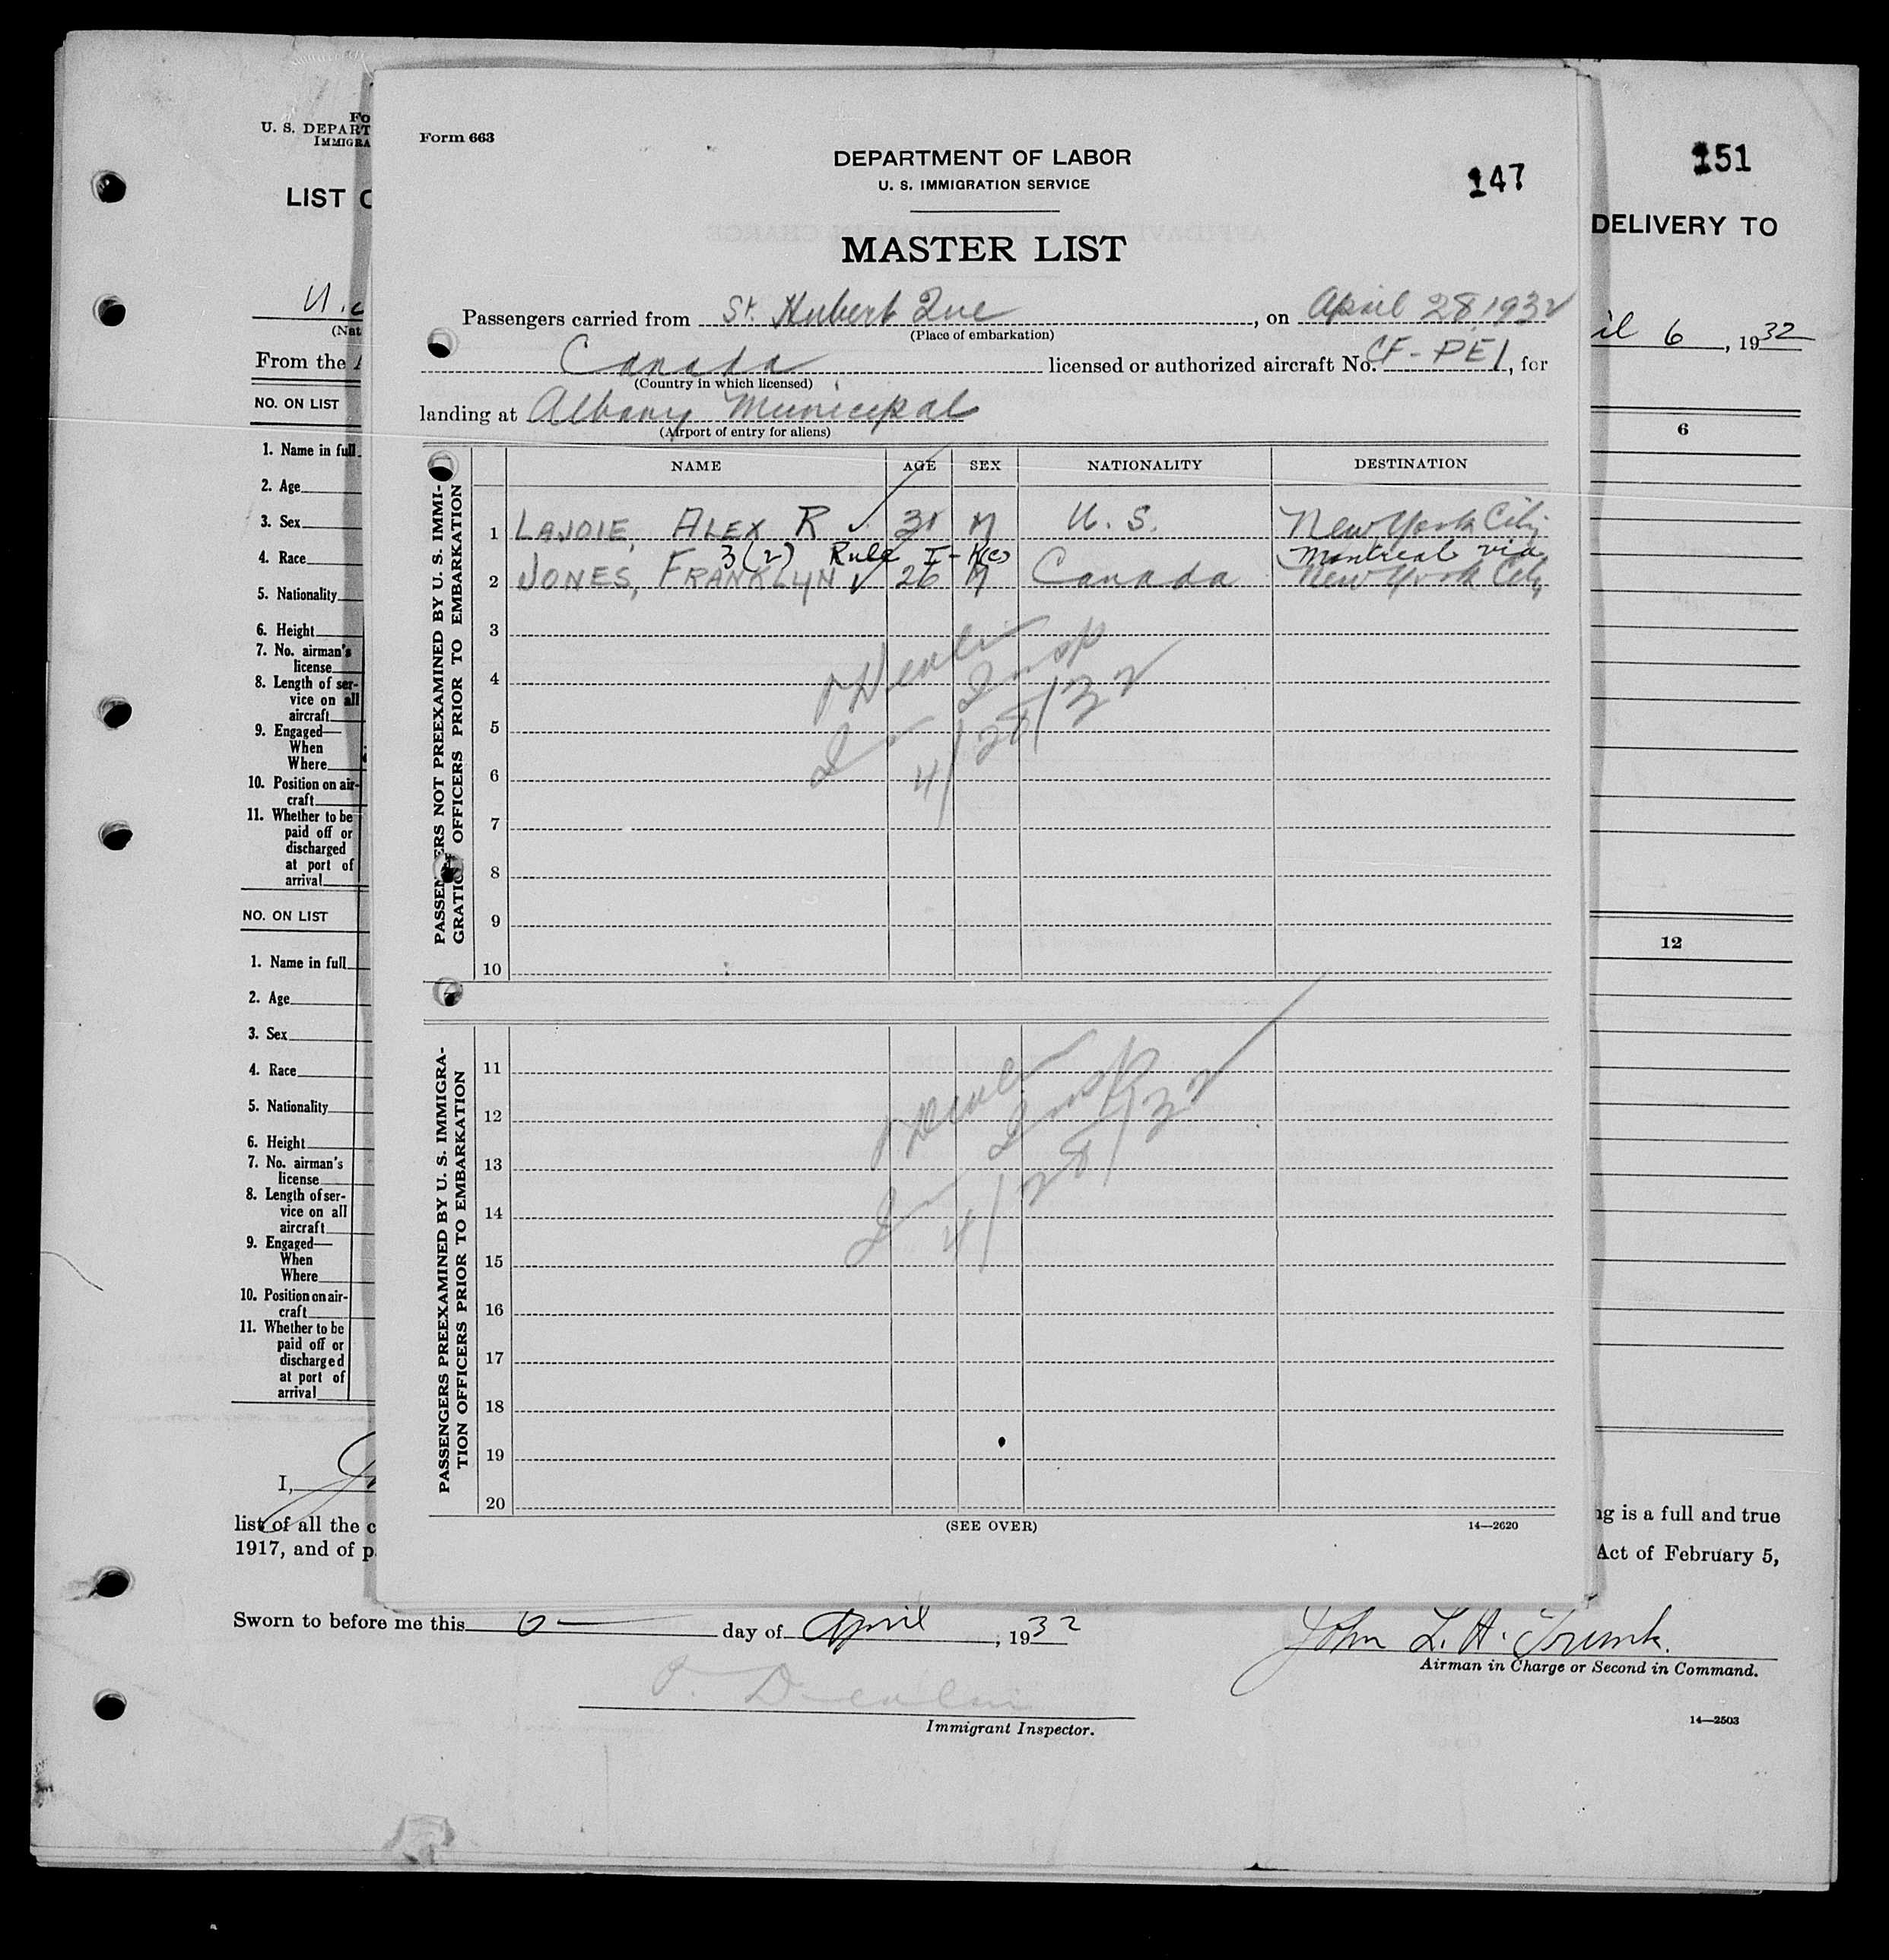 Form 663
DEPARTMENT OF LABOR
U. S. IMMIGRATION SERVICE
147
MASTER LIST
Passengers carried from St. Hubert Que, on April 28, 1932
(Place of embarkation)
Canada licensed or authorized aircraft No. CF-PEI, for
(Country in which licensed)
landing at Albany Municipal
(Airport of entry for aliens)
NAME AGE SEX NATIONALITY DESTINATION
PASSENGERS NOT PREEXAMINED BY U. S. IMMI-
GRATION OFFICERS PRIOR TO EMBARKATION
1 LAJOIE, ALEX R M U. S. New York City
3(2) Rule I-K(c) Montreal via
2 JONES, FRANKLYN 26 M Canada New York City
3
4
5
6
7
8
9
10
Imm Insp
4/28/32
PASSENGERS PREEXAMINED BY U. S. IMMIGRA-
TION OFFICERS PRIOR TO EMBARKATION
11
12
13
14
15
16
17
18
19
20
Imm Insp
4/28/32
(SEE OVER)
14—2620
Fo
U. S. DEPART
IMMIGRA
LIST
U.
(Nat
From the A
NO. ON LIST
1. Name in full
2. Age
3. Sex
4. Race
5. Nationality
6. Height
7. No. airman's
license
8. Length of ser-
vice on all
aircraft
9. Engaged—
When
Where
10. Position on air-
craft
11. Whether to be
paid off or
discharged
at port of
arrival
NO. ON LIST
1. Name in full
2. Age
3. Sex
4. Race
5. Nationality
6. Height
7. No. airman's
license
8. Length of ser-
vice on all
aircraft
9. Engaged—
When
Where
10. Position on air-
craft
11. Whether to be
paid off or
discharged
at port of
arrival
151
DELIVERY TO
il 6, 1932
6
12
I,
list of all the c
ng is a full and true
1917, and of p
Act of February 5,
Sworn to before me this 6 day of April, 1932
John L. H. Trunk.
Airman in Charge or Second in Command.
Immigrant Inspector.
14—2503